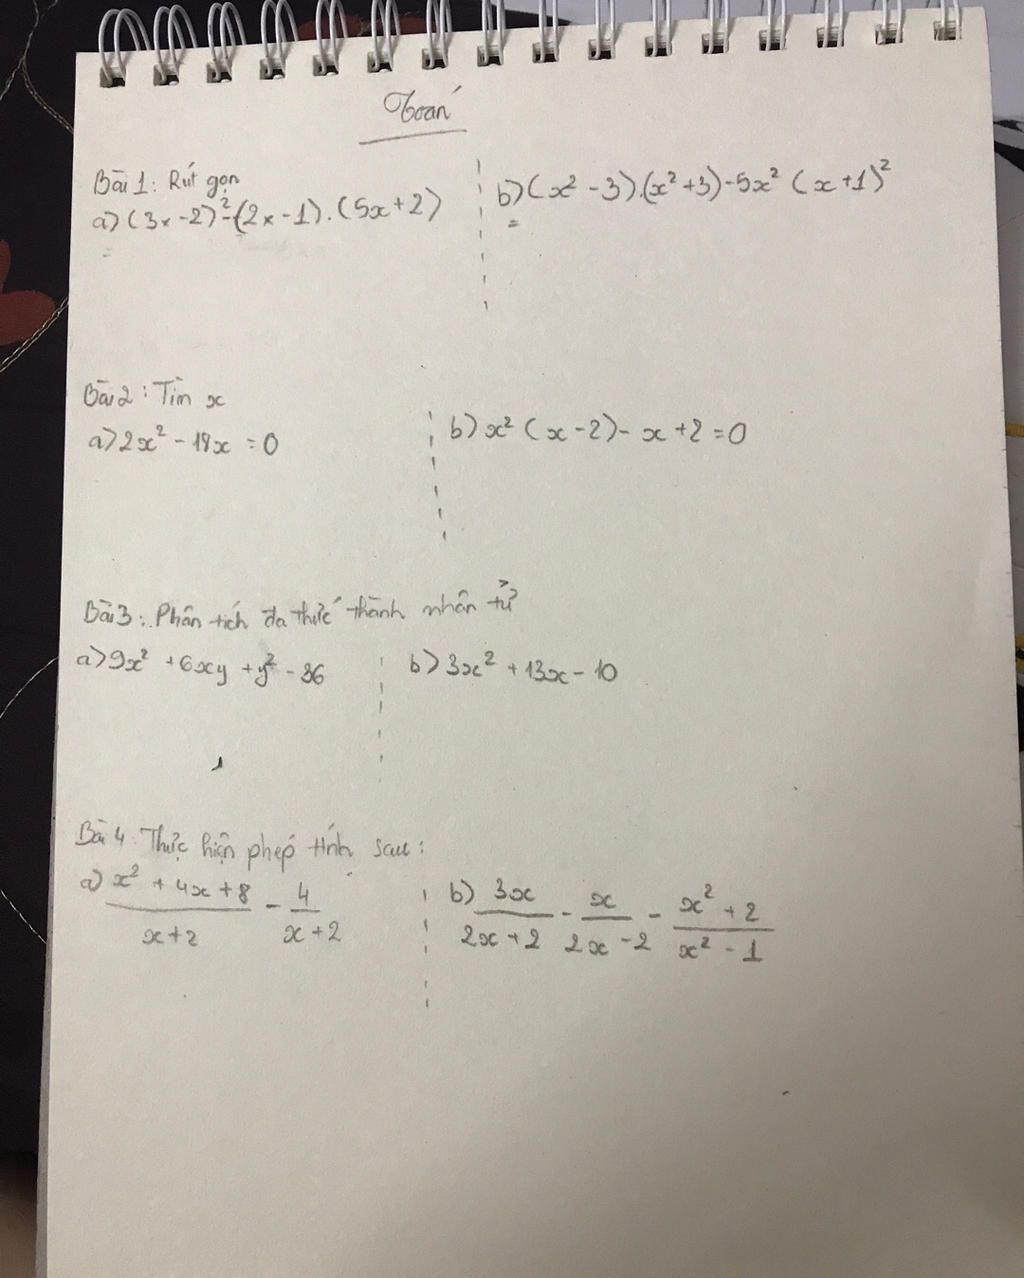 Toán
Bài 1: Rút gọn
a) (3x - 2)² - (2x - 1) . (5x + 2)
=
b) (x² - 3).(x² + 3) - 5x² (x + 1)²
=
Bài 2: Tìm x
a) 2x² - 18x = 0
b) x² (x - 2) - x + 2 = 0
Bài 3: Phân tích đa thức thành nhân tử
a) 9x² + 6xy + y² - 36
b) 3x² + 13x - 10
Bài 4 Thực hiện phép tính sau:
a) (x² + 4x + 8)/(x + 2) - 4/(x + 2)
b) 3x/(2x + 2) - x/(2x - 2) - (x² + 2)/(x² - 1)